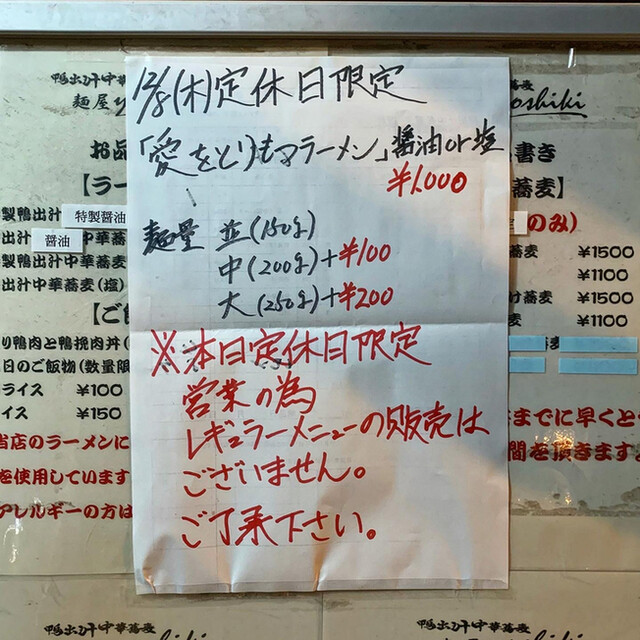 12/8(木)定休日限定
「愛をとりもどすラーメン」醤油or塩
¥1,000
麺量 並(150g)
中(200g)+¥100
大(250g)+¥200
※本日定休日限定
営業の為
レギュラーメニューの販売は
ございません。
ご了承下さい。
鴨出汁中華蕎麦
麺屋
oshiki
お品
書き
【ラー
蕎麦】
製鴨出汁
特製醤油
のみ)
出汁
醤油
中華蕎
蕎麦 ¥1500
製鴨出汁中華蕎麦
¥1100
出汁中華蕎麦(塩)
け蕎麦 ¥1500
¥1100
【ご
り鴨肉と鴨挽肉丼(
日のご飯物(数量限
ライス ¥100
イス ¥150
当店のラーメンに
を使用しています
アレルギーの方は
までに早くと
間を頂きます
鴨出汁中華蕎麦
鴨出汁中華蕎麦